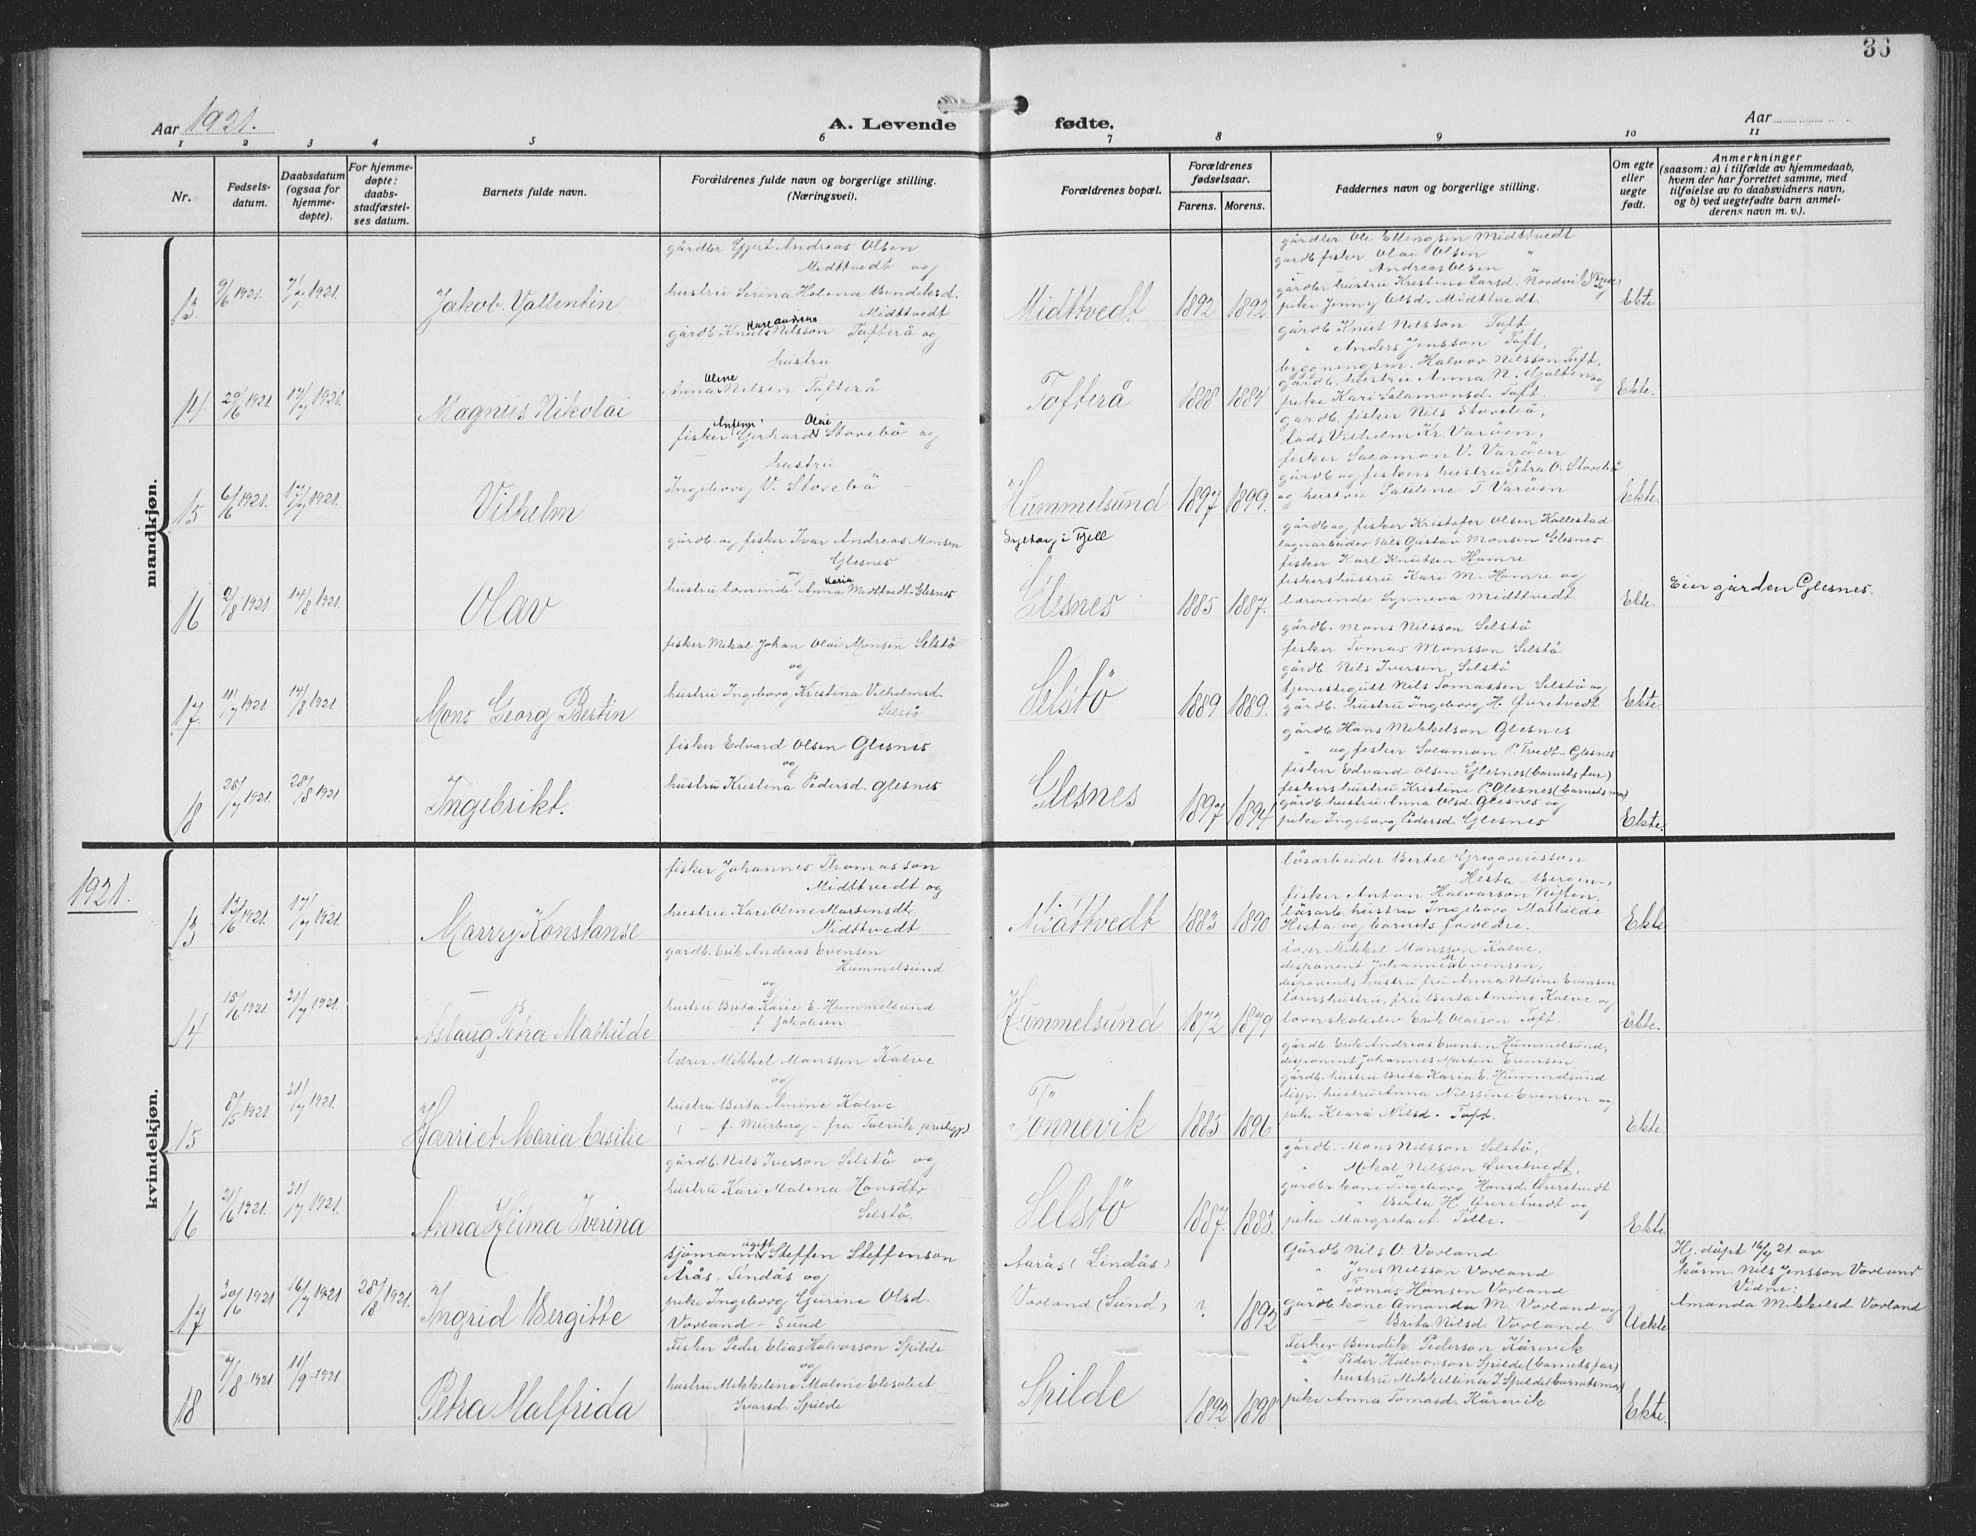 36
Aar 1921.
A. Levende fødte.
Aar
1 2 3 4 5 6 7 8 9 10 11
Nr.
Fødsels-
datum.
Daabsdatum
(ogsaa for
hjemme-
døpte).
For hjemme-
døpte:
daabs-
stadfæstel-
ses datum.
Barnets fulde navn.
Forældrenes fulde navn og borgerlige stilling.
(Næringsvei).
Forældrenes bopæl.
Forældrenes
fødselsaar.
Farens. Morens.
Faddernes navn og borgerlige stilling.
Om egte
eller
uegte
født.
Anmerkninger
(saasom: a) i tilfælde av hjemmedaab,
hvem der har forrettet samme, med
tilføielse av to daabsvidners navn,
og b) ved uegtefødte barn anmel-
derens navn m. v.).
mandkjøn.
13
9/6 1921.
7/7 1921.
Jakob Vallentin
gårdbr Gjert Andreas Olsen
Midttvedt og
hustru Serina Helena Bendiksd.
Midttvedt
Midttvedt
1892 1892
gårdbr. Ole Ellingsen Midttvedt
gårdb. fisker Olai Olsen "
" - Andreas Olsen "
gårdbr hustru Kristine Larsd. Nordvik
pike Jenny Olsd. Midttvedt.
Ekte
14
29/6 1921.
17/7 1921.
Magnus Nikolai
gårdb Knut Nilsson Tofterå og
hustru
Anna Oline Nilsen Tofterå
Tofterå
1888 1884
gårdb. Knut Nilsson Toft,
" Anders Jensson Toft,
byggningsm. Halvor Nilsson Toft,
gårdb. hustru Anna N. og
pike Kari Salamonsd. Toft.
Ekte.
15
6/6 1921.
17/7 1921.
Vilhelm
fisker Gerhard Olai Storebö og
hustru
Ingeborg V. Storebö
Hummelsund
1897 1899.
gårdb. fisker Nils Storebö,
Lods Vilhelm Kr. Varöen,
fisker Salamon V. Varöen
gårdb og fiskers hustru Petra O. Storebö
og hustru Pauline T. Varöen
Ekte.
16
2/8 1921
14/8 1921.
Olav
gårdb. og fisker Ivar Andreas Monsen
Glesnes
og
hustru lærerinde Anna Karia Midttvedt-Glesnes
i Fjell
Glesnes
1885 1887.
gårdb og fisker Kristofer Olsen Kallestad
lagerarbeider Nils Gustav Monsen Glesnes
fisker Karl Knutsen Hamre
fiskershustru Kari M. Hamre og
lærerinde Synneva Midttvedt.
Ekte.
Eier gården Glesnes.
17.
11/7 1921.
14/8 1921.
Mons Georg Bertin
fisker Mikal Johan Olai Monsen Selstö
og
hustru Ingeborg Kristina Vilhelmsd.
Selstö
Selstö
1889 1889.
gårdb. Mons Nilsson Selstö
fisker Tomas Monsson Selstö
gårdb Nils Iversen Selstö
tjenestegutt Nils Tomassen Selstö og
gårdb. hustru Ingeborg H. Övretvedt
Ekte.
18
25/7 1921.
28/8 1921
Ingebrikt.
fisker Edvard Olsen Glesnes
og
hustru Kristina Pedersd. Glesnes
Glesnes
1897 1894
gårdb Hans Mikkelson Glesnes
" og fisker Salamon P. Tvedt-Glesnes
fisker Edvard Olsen Glesnes (barnets far)
fiskers hustru Kristine P. Glesnes (barnets mor)
gårdb. hustru Anna Olsd. Glesnes og
pike Ingeborg Pedersd. Glesnes
Ekte.
1921.
kvindekjøn.
13
13/6 1921.
17/7 1921.
Marrry Konstanse
fisker Johannes Thomasson
Midttvedt og
hustru Kari Oline Martensdt.
Midttvedt
Midttvedt
1883 1890
lösarbeider Bertel Gregoriusson
Hesta - Bergen,
fisker Anton Halvorson
lösarb. hustru Ingeborg Mathilde
Hesta og barnets foreldre.
Ekte
14
15/6 1921.
31/7 1921.
Aslaug Petra Mathilde
gårdb. Erik Andreas Evensen
Hummelsund
og
hustru Brita Karie E. Hummelsund
f. Jakobsen
Hummelsund
1872 1879
lærer Mikkel Monsson Kalve,
disponent Johannes M. Evensen,
disponents hustru fru Anna Nilsine Evensen
lærershustru, fru Berta Amine Kalve og
lærerskoleelev Erik Olaison Toft.
Ekte.
15
8/5 1921.
31/7 1921.
Harriet Maria Cisilie
lærer Mikkel Monssen Kalve
og
hustru Berta Amine Kalve
f. Murberg - fra Talvik prestegj.)
Tönnevik
1885 1896
gårdb. Erik Andreas Evensen Hummelsund,
disponent Johannes Martin Evensen,
gårdb. hustru Brita Karia E. Hummelsund
disp. hustru Anna Nilssine Evensen og
pike Klara Nilsd. Toft.
Ekte.
16
21/6 1921.
31/7 1921.
Anna Hilma Iverina
gårdb. Nils Iverson Selstö og
hustru Kari Malena Hansdtr
Selstö.
Selstö
1887. 1883.
gårdb. Mons Nilsson Selstö,
" Mikal Nilsson Övretvedt,
gårdbr kone Ingeborg Hansd. Övretvedt
" " Berta H. Övretvedt og
pike Margreta A. Telle. -
Ekte.
17
30/6 1921
16/7 1921
28/8 1921.
Ingrid Bergitte
sjömann ugift Steffen Steffenson
Årås, Lindås og
pike Ingeborg Gurine Olsd.
Vorland - Sund
Aarås (Lindås)
Vorland (Sund)
? 1892
Gårdb Nils O. Vorland
" Jens Nilsson Vorland
" Tomas Hansen Vorland
gårdb kone Amanda M. Vorland og
- - Brita Nilsd. Vorland.
Uekte
Hj. döpt 16/7 21. av
Nils Jensson Vorland
Vidne:
Amanda Mikkelsd. Vorland
18
7/8 - 1921
11/9 - 1921
Petra Malfrida
Fisker Peder Elias Halvorson Spilde
og
hustru Mikkeline Malene Elesabet
Ivarsd. Spilde
Spilde
1892 1898
Fisker Bendik Pederson Kårevik
" Peder Halvorson Spilde (barnets far)
" hustru Mikkelina I. Spilde (barnets mor)
pike Anna Tomasd. Kårevik
Ekte.